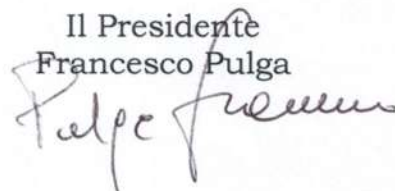 Il Presidente
Francesco Pulga
Pulga Francesco